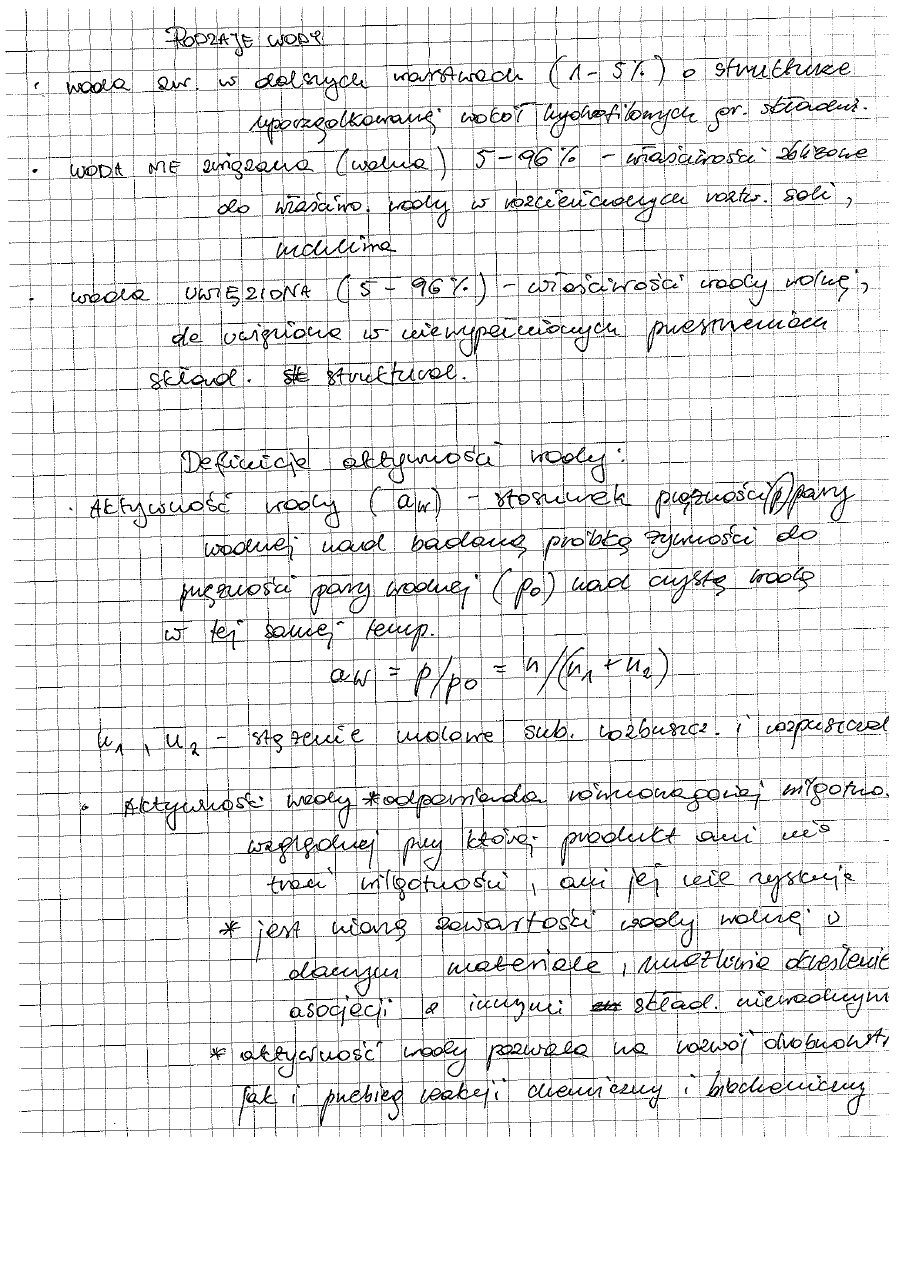 RODZAJE WODY
· woda zw. w dalszych warstwach (1-5%) o strukturze
uporządkowanej wokół hydrofilowych gr. składni.
· WODA NIE związana (wolna) 5-96% - właściwości zbliżone
do właściw. wody w rozcieńczonych roztw. soli,
· woda UWIĘZIONA (5-96%) - właściwości wody wolnej,
ale uwięziona w niewypełnionych przestrzeniach
skład. struktural.
Definicje aktywności wody:
· Aktywność wody (aw) - stosunek prężności (p) pary
wodnej nad badaną próbką żywności do
prężności pary wodnej (po) nad czystą wodą
w tej samej temp.
aw = p/po = n/(n1 + n2)
n1, n2 - stężenie molowe sub. rozpuszcz. i rozpuszczal
· Aktywność wody *odpowiada równowagowej wilgotno.
względnej przy której produkt ani nie
traci wilgotności, ani jej nie zyskuje
* jest miarą zawartości wody wolnej w
danym materiale, umożliwia określenie
asocjacji z innymi skład. niewodnym
* aktywność wody pozwala na rozwój drobnoustr
jak i przebieg reakcji chemiczny i biochemiczny